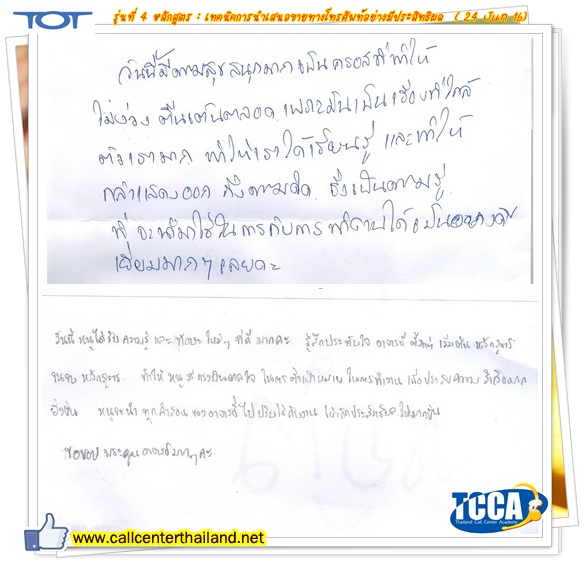 TOT
รุ่นที่ 4 หลักสูตร : เทคนิคการนำเสนอขายทางโทรศัพท์อย่างมีประสิทธิผล ( 24 Jun 16)
วันนี้มีความสุขสนุกมาก เป็นครอสที่ทำให้
ไม่ง่วง ตื่นเต้นตลอด เพราะมันเป็นเรื่องที่ใกล้
ตัวเรามาก ทำให้เราได้เรียนรู้ และทำให้
กล้าแสดงออก ถึงความคิด ซึ่งเป็นความรู้
ที่จะนำมาใช้ในการทำงานได้เป็นอย่างดี
เยี่ยมมากๆ เลยคะ
วันนี้ หนูได้รับความรู้ และทักษะ ใหม่ๆ ที่ดี มากคะ รู้สึกประทับใจ อาจารย์ ตั้งแต่ เริ่มต้น หลักสูตร
จนจบ หลักสูตร ทำให้ หนู มีแรงบันดาลใจ ในการตั้งเป้าหมาย ในการทำงาน เพื่อประสบความสำเร็จมาก
ยิ่งขึ้น หนูจะนำ ทุกคำสอน ของอาจารย์ ไปปรับใช้กับงาน ให้เกิดประสิทธิผล ให้มากขึ้น
ขอขอบ พระคุณ อาจารย์มากๆ คะ
TCCA
Thailand Call Center Academy
www.callcenterthailand.net